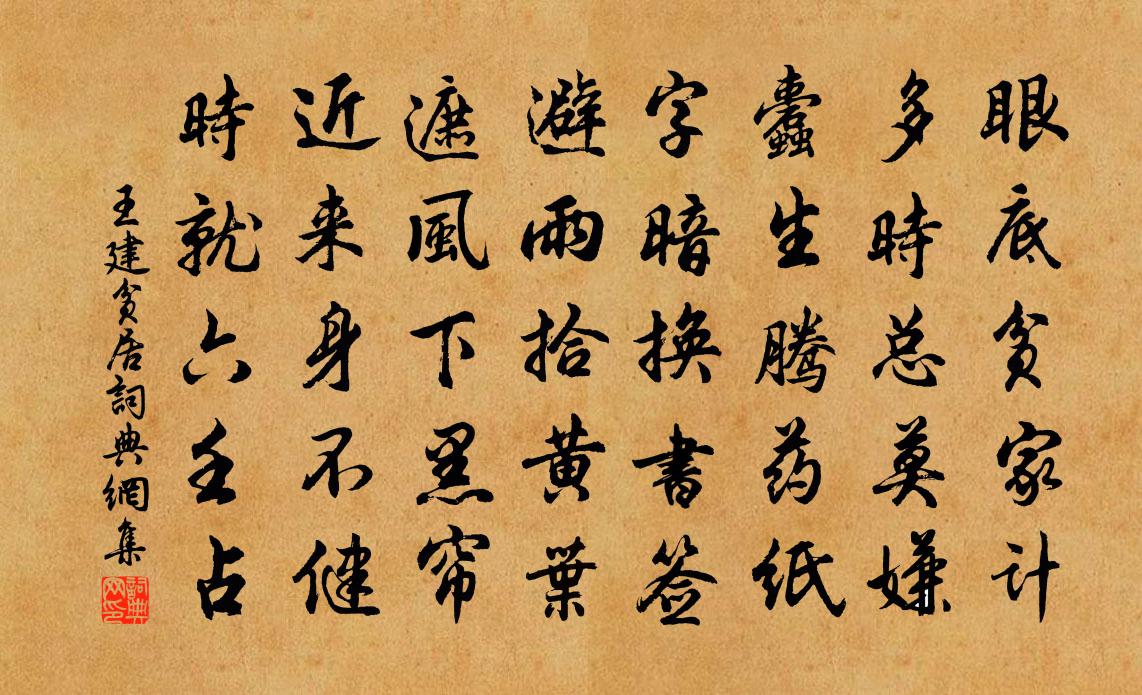 眼底贫家计
多時总莫嫌
蠹生腾药纸
字暗换書签
避雨拾黄葉
遮風下黑帘
近来身不健
時就六壬占
王建贫居詞典網集
詞典网印